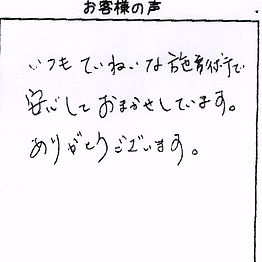 お客様の声
いつもていねいな施術で
安心しておまかせしています。
ありがとうございます。